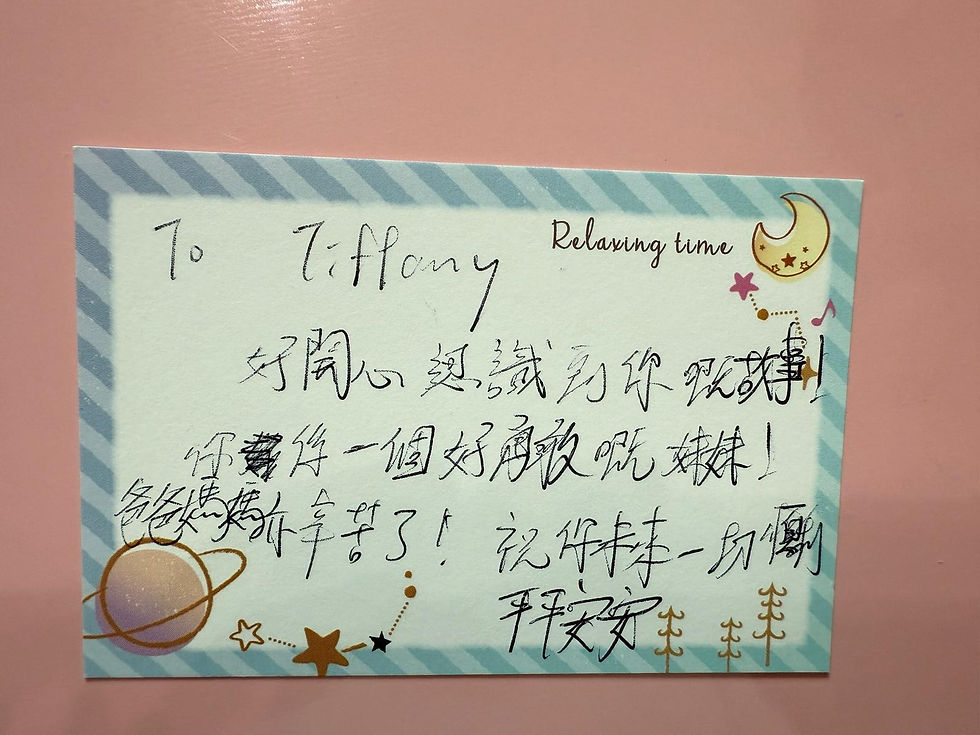 To Tiffany
Relaxing time
好開心認識到你嘅故事!
你係一個好勇敢嘅妹妹!
爸爸媽媽亦辛苦了! 祝你未來一切順利
平平安安